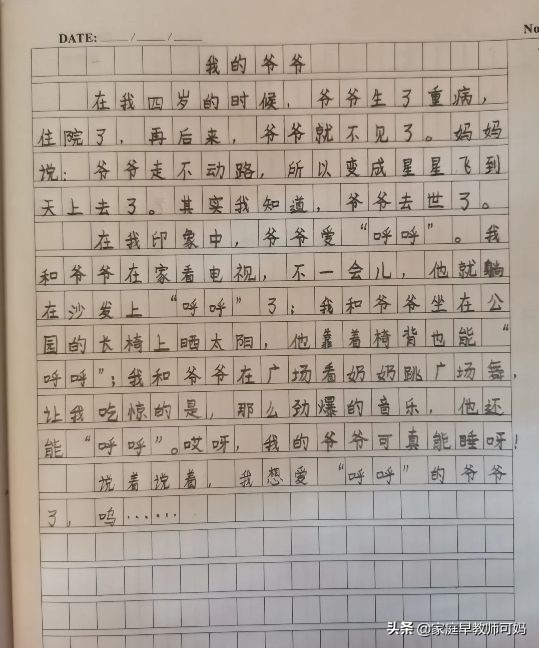 DATE: No
我的爷爷
在我四岁的时候，爷爷生了重病，
住院了，再后来，爷爷就不见了。妈妈
说：爷爷走不动路，所以变成星星飞到
天上去了。其实我知道，爷爷去世了。
在我印象中，爷爷爱“呼呼”。我
和爷爷在家看电视，不一会儿，他就躺
在沙发上“呼呼”了；我和爷爷坐在公
园的长椅上晒太阳，他靠着椅背也能“
呼呼”；我和爷爷在广场看奶奶跳广场舞，
让我吃惊的是，那么劲爆的音乐，他还
能“呼呼”。哎呀，我的爷爷可真能睡呀！
说着说着，我想爱“呼呼”的爷爷
了，呜……
头条 @家庭早教师可妈